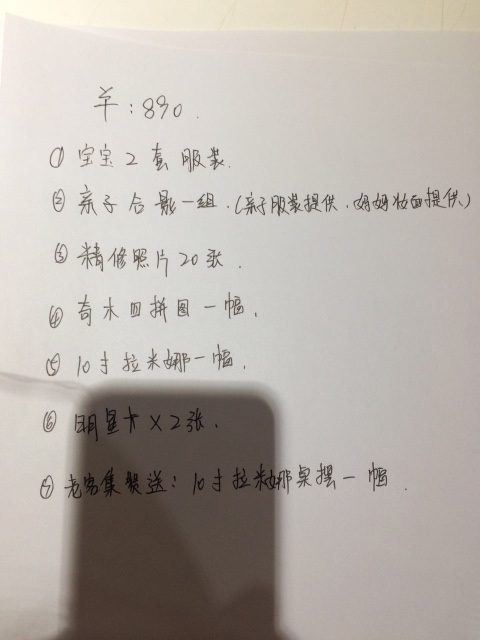 ￥:890.
① 宝宝2套服装.
② 亲子合影一组.(亲子服装提供.妈妈妆面提供.)
③ 精修照片20张.
④ 奇木四拼图一幅.
⑤ 10寸拉米娜一幅.
⑥ 明星卡×2张.
⑦ 老客集赞送:10寸拉米娜桌摆一幅.